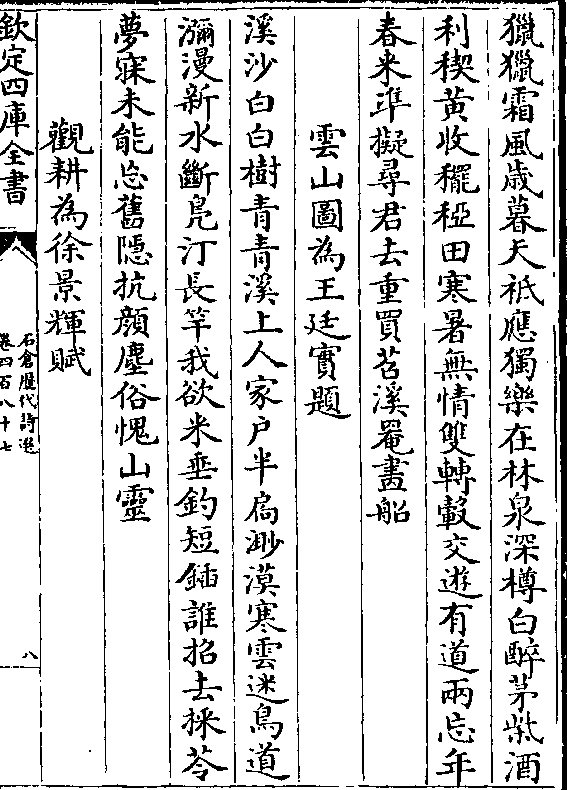 獵獵霜風歲暮天祗應獨樂在林泉深樽白醉茅柴酒
利稧黄收䆉稏田寒暑無情雙轉轂交遊有道兩忘年
春來準擬尋君去重買苕溪罨畫船
雲山圖為王廷實題
溪沙白白樹青青溪上人家户半扃渺漠寒雲迷鳥道
瀰漫新水斷凫汀長竿我欲来垂釣短鍤誰招去採苓
夢寐未能忘舊隱抗顔塵俗愧山靈
觀耕為徐景輝賦
欽定四庫全書
石倉歷代詩選
卷四百八十七
八